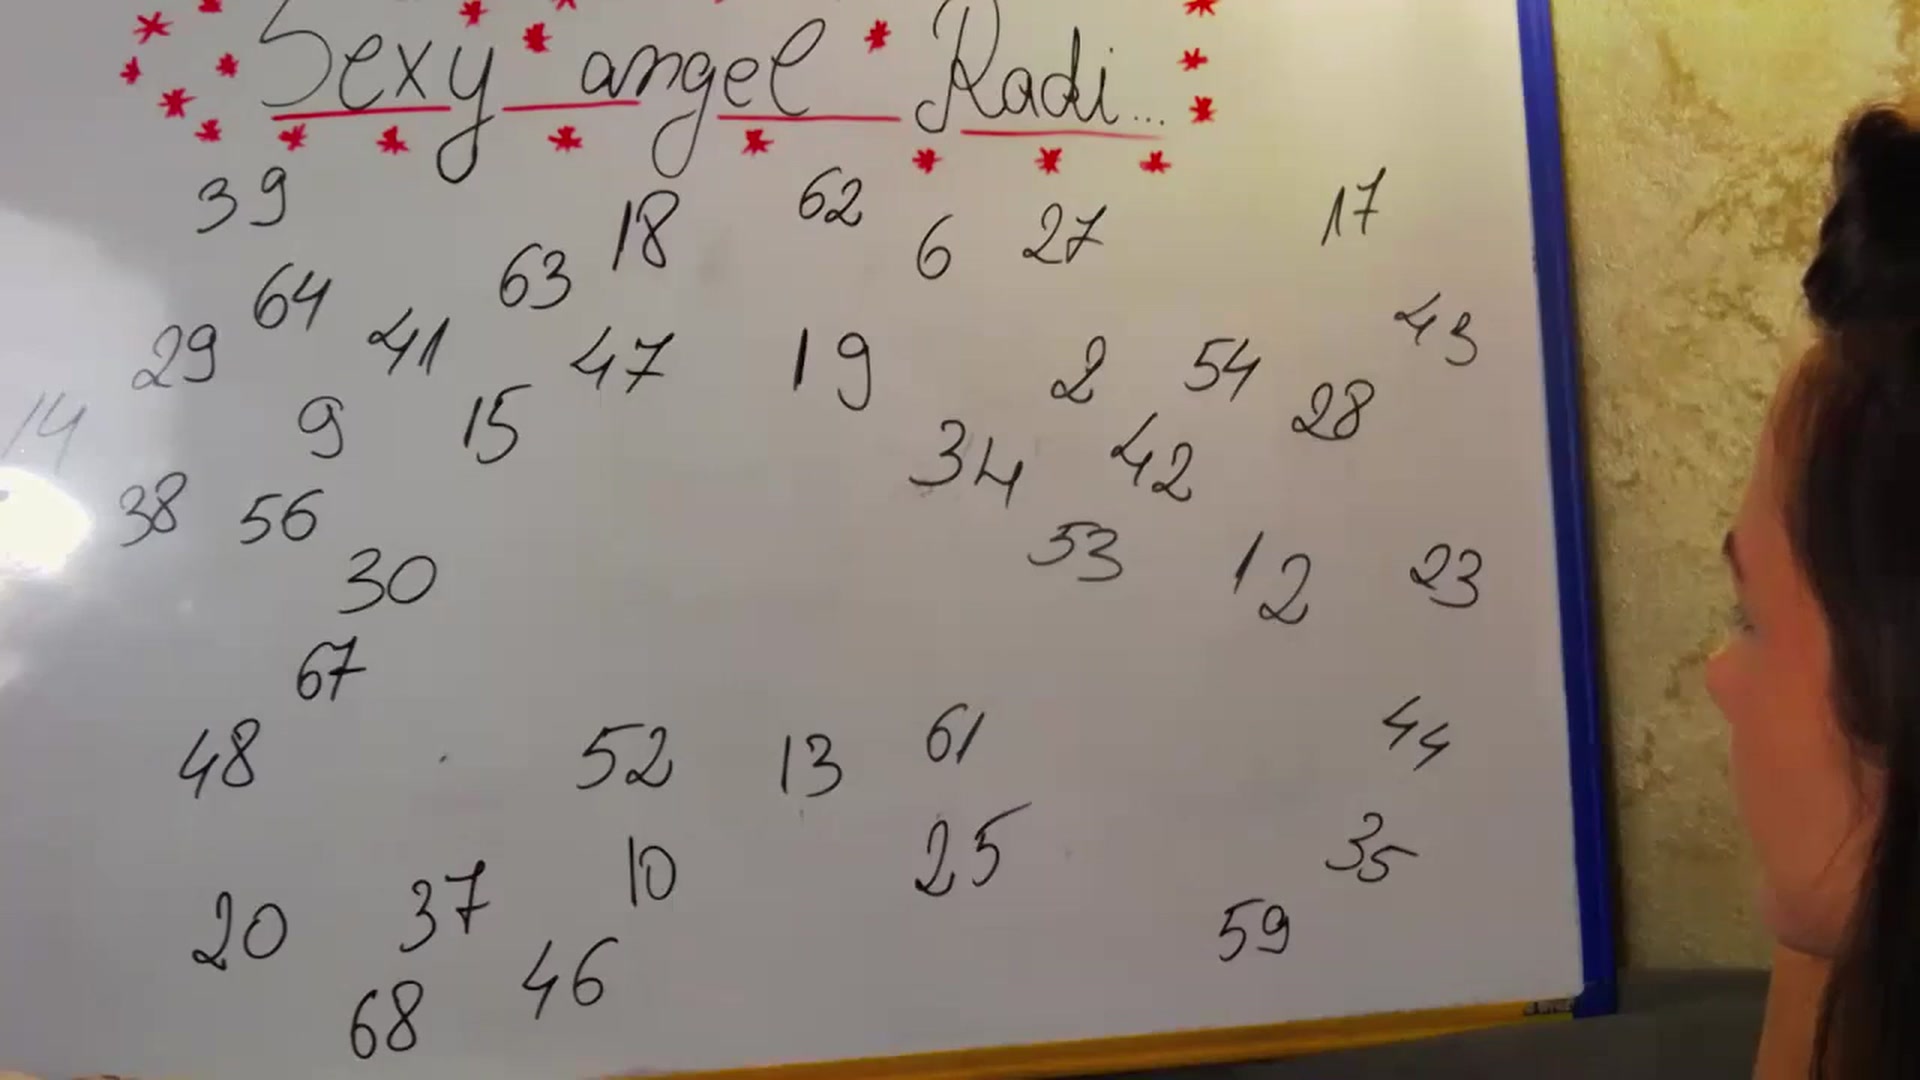 Sexy angel Radi...
39 18 62 6 27 17
64 63
29 41 47 19 2 54 43
14 9 15 28
34 42
38 56 53
30 12 23
67
48 52 13 61 44
10 25 35
20 37 59
68 46